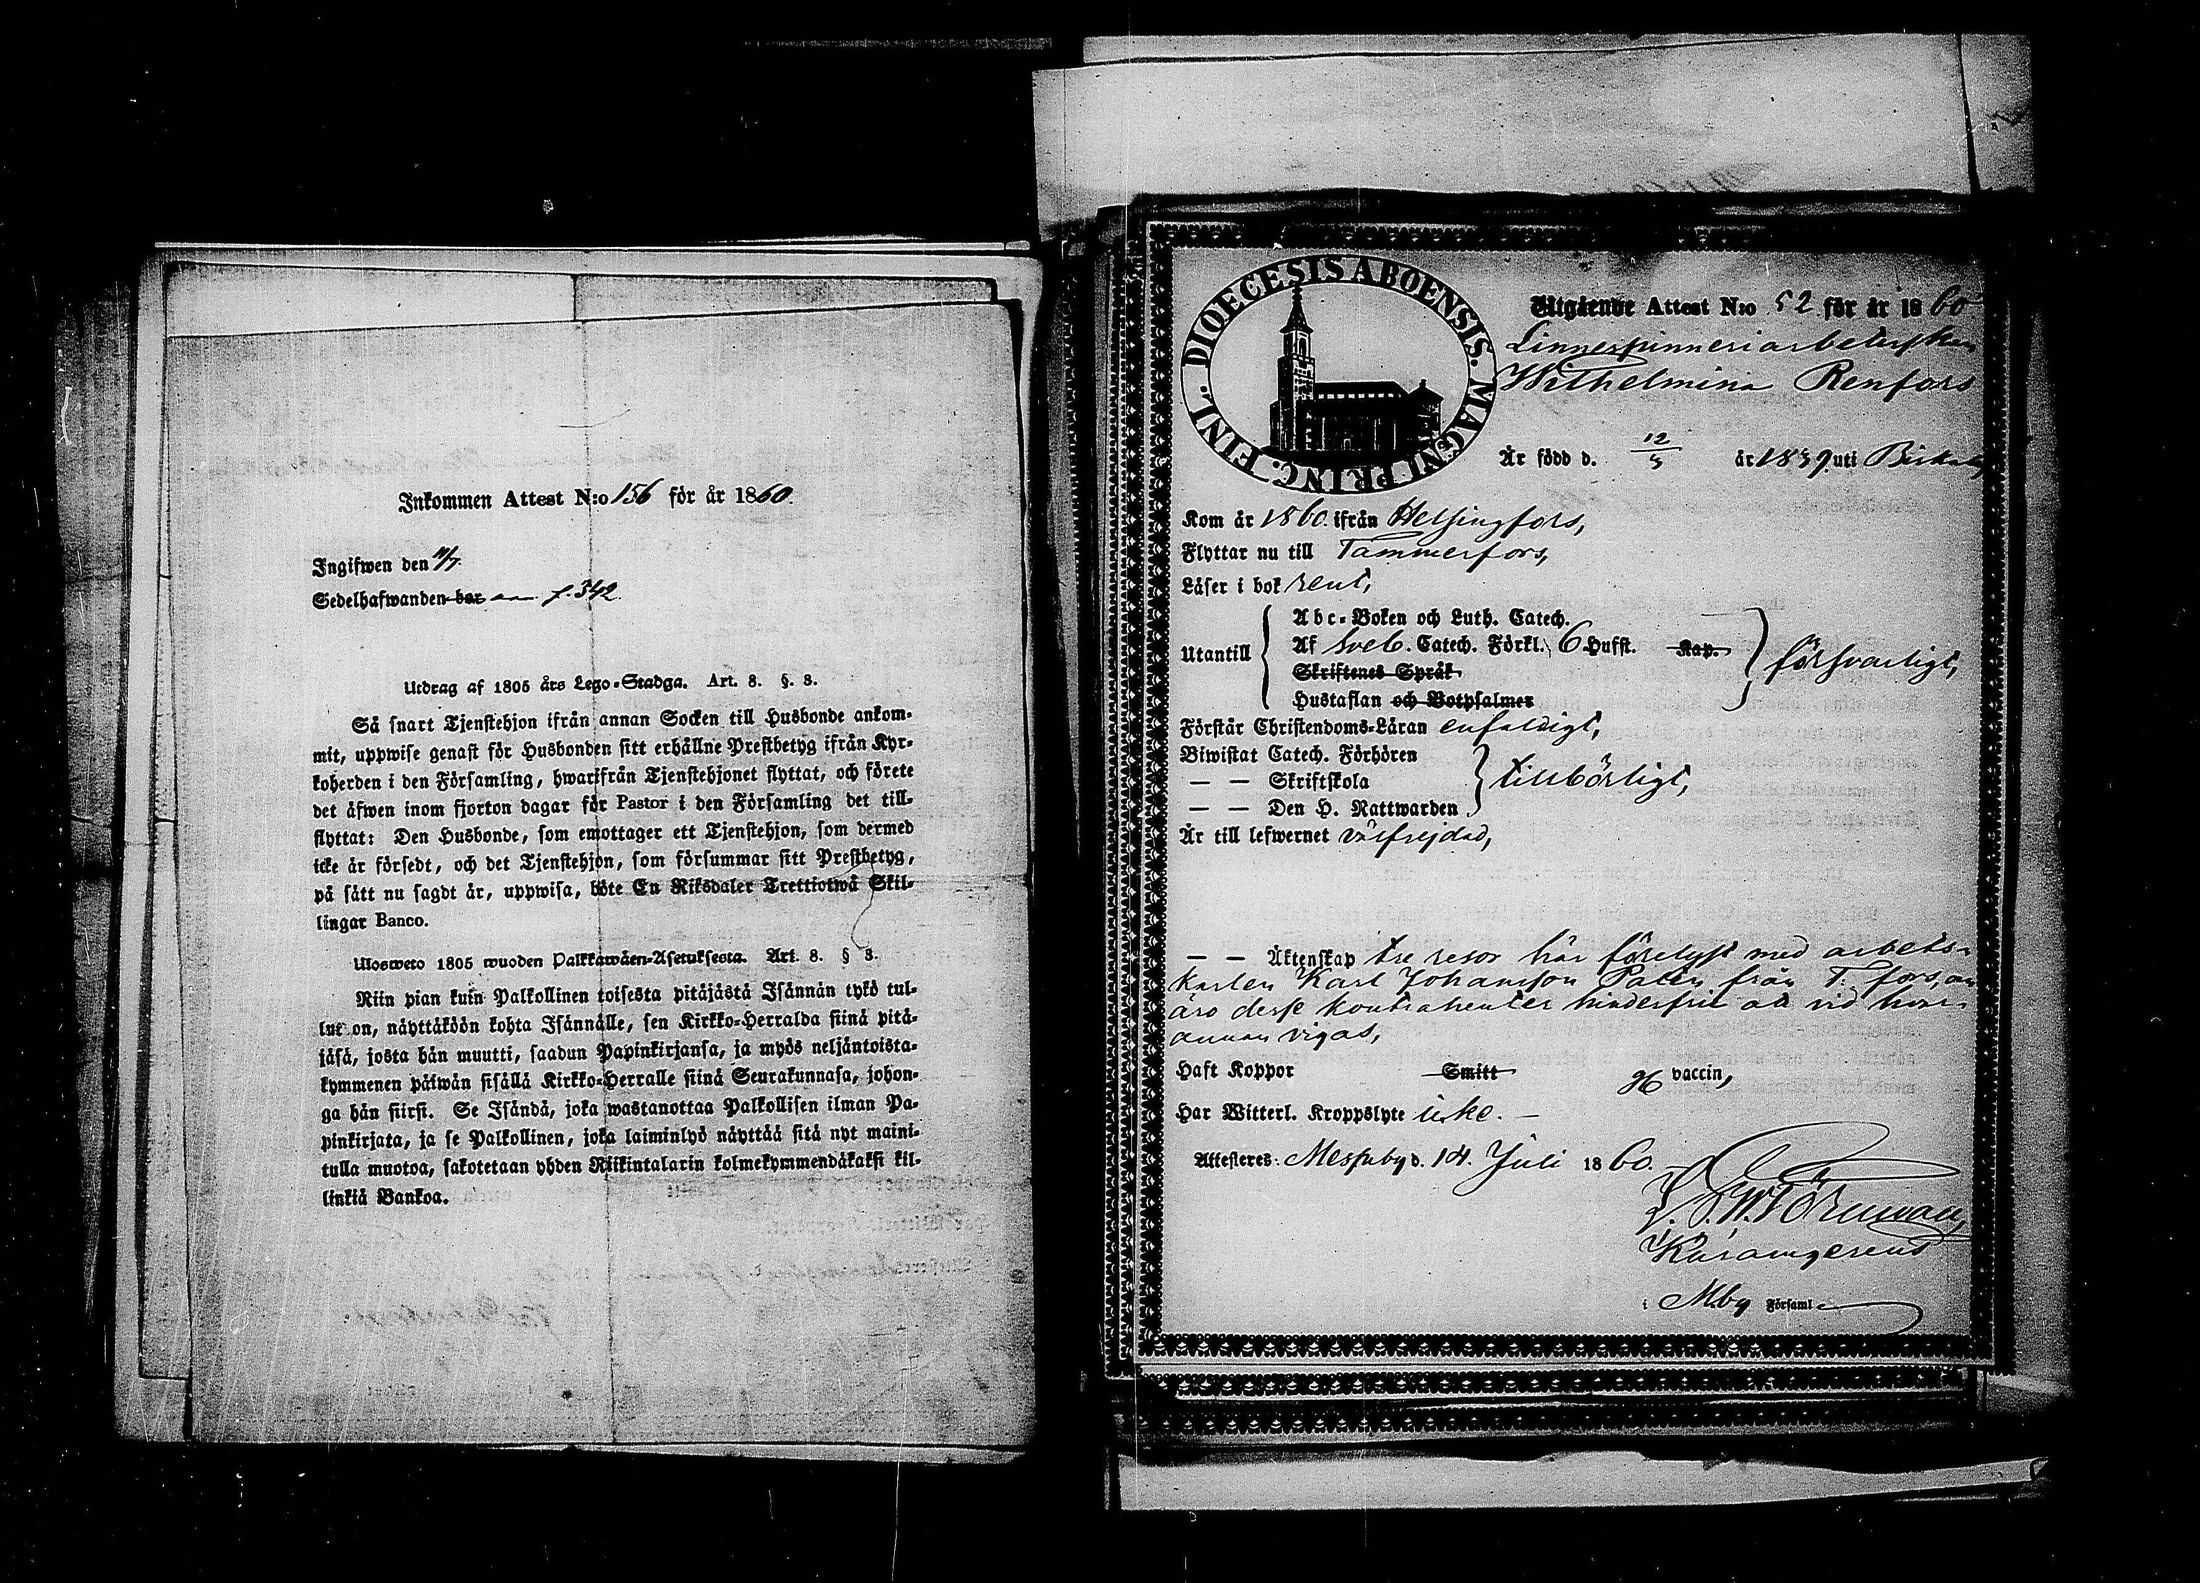 Inkommen Attest N:o 156 för år 1860.
Ingifwen den
Sedelhafwanden har f. 342.
Utdrag af 1805 års Lego-Stadga. Art. 8. §. 3.
Så snart Tjenstehjon ifrån annan Socken till Husbonde ankom-
mit, uppwise genast för Husbonden sitt erhållne Prestbetyg ifrån Kyr-
koherden i den Församling, hwarifrån Tjenstehjonet flyttat, och förete
det äfwen inom fjorton dagar för Pastor i den Församling det till-
flyttat: Den Husbonde, som emottager ett Tjenstehjon, som dermed
icke är försedt, och det Tjenstehjon, som försummar sitt Prestbetyg,
på sätt nu sagdt är, uppwisa, böte En Riksdaler Trettiotwå Skil-
lingar Banco.
Ulosweto 1805 wuoden Palkkawäen-Asetuksesta. Art. 8. § 3.
Niin pian kuin Palkollinen toisesta pitäjästä Isännän tykö tul-
lut on, näyttäköön kohta Isännälle, sen Kirkko-Herralda siinä pitä-
jäsä, josta hän muutti, saadun Papinkirjansa, ja myös neljäntoista-
kymmenen päiwän sisällä Kirkko-Herralle siinä Seurakunnasa, johon-
ga hän siirsi. Se Isändä, joka wastanottaa Palkollisen ilman Pa-
pinkirjata, ja se Palkollinen, joka laiminlyö näyttää sitä nyt maini-
tulla muotoa, sakotetaan yhden Riikintalarin kolmekymmendäkaksi kil-
linkiä Bankoa.
DIOECESIS ABOENSIS. MAGNI PRINC. FINL.
Utgående Attest N:o 52 för år 1860
Linnespinneriarbeterskan
Wilhelmina Renfors
Är född d. 12/3 år 1839 uti Birkala
Kom år 1860. ifrån Helsingfors,
Flyttar nu till Tammerfors,
Läser i bok rent,
Utantill
Abc-Boken och Luth. Catech.
Af Sveb. Catech. Förkl. 6 Hufst. Kap.
Skriftenes Språk
Hustaflan och Botpsalmer
försvarligt,
Förstår Christendoms-Läran enfaldigt,
Biwistat Catech. Förhören
— — Skriftskola
— — Den H. Nattwarden
tillbörligt,
Är till lefwernet välfrejdad,
— — Äktenskap tre resor här förelyst med arbets-
karlen Karl Johansson Palén från T. fors, och
äro desse kontrahenter hinderfria att vid hvar-
annan vigas,
Haft Koppor Smitt gm vaccin,
Har Witterl. Kroppslyte icke. —
Attesteres: Messuby d. 14. Juli 1860.
i M.by Församl